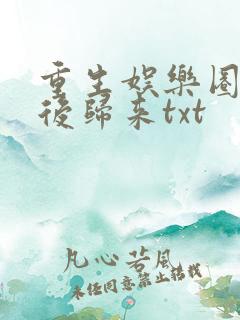 重生娱樂圈
後歸来txt
凡心若風
未经同意禁止转载